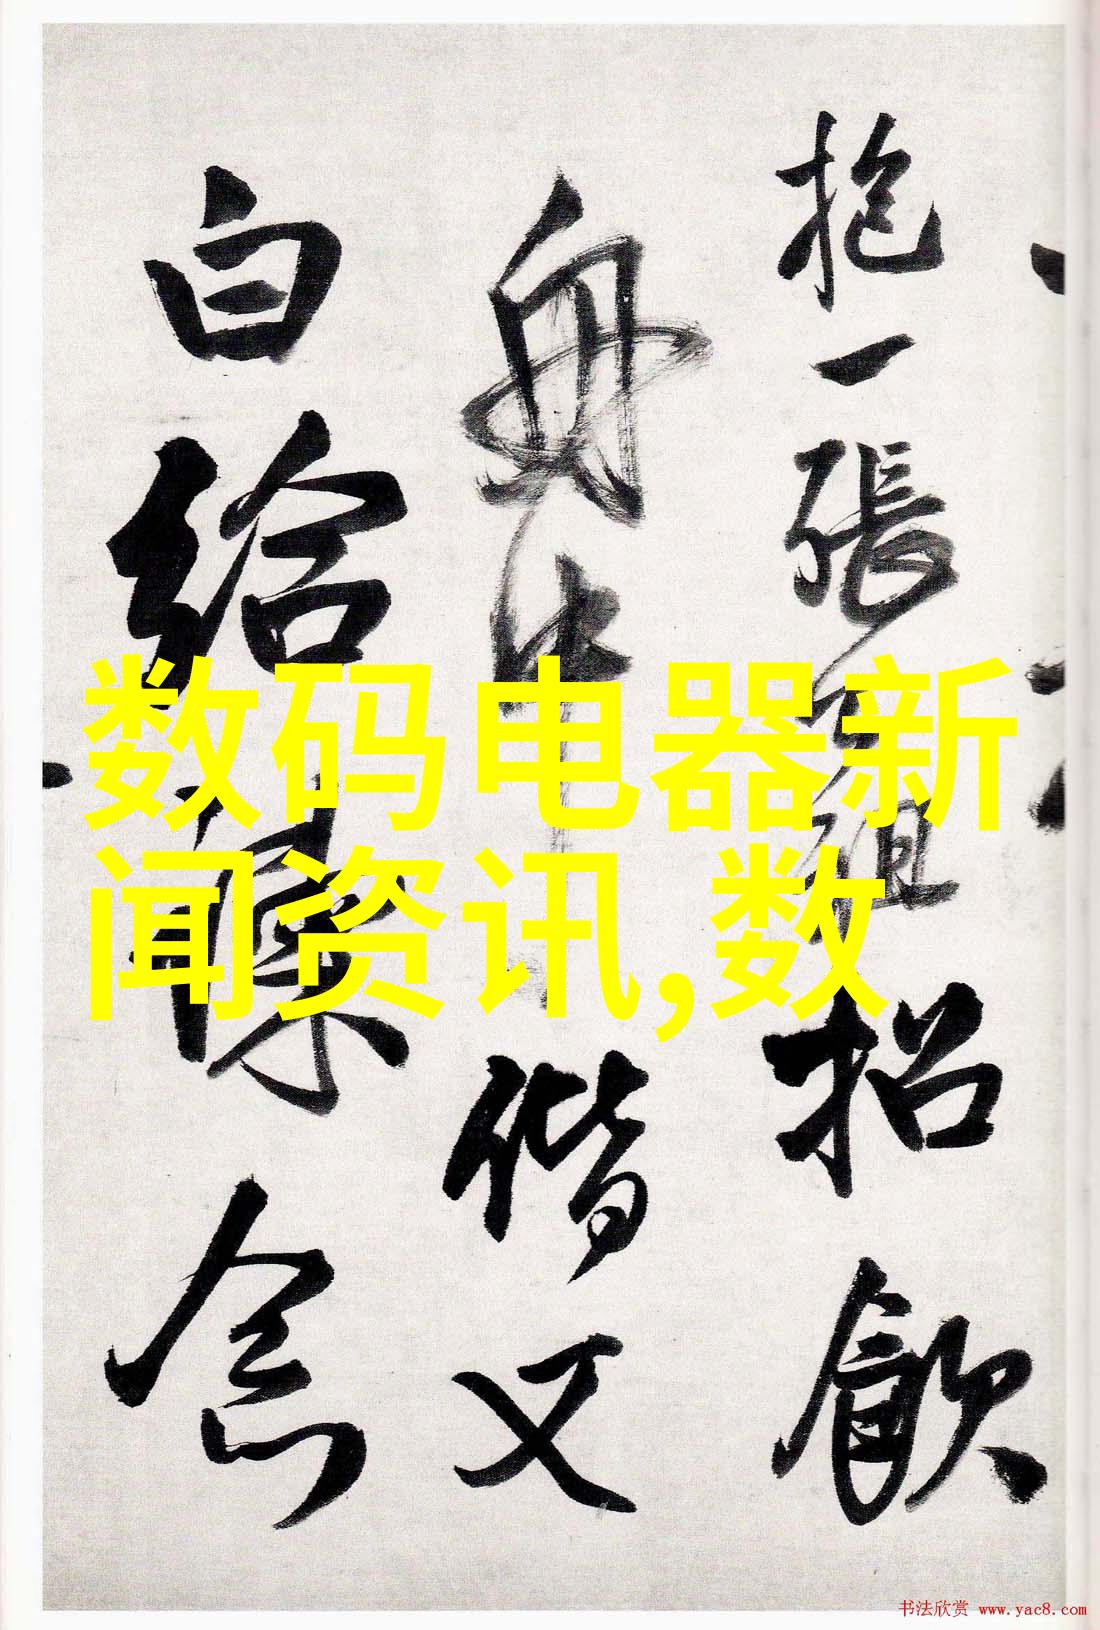 抱一張
招飲
舟中
偕又
白給
念
数码电器新
闻资讯,数
书法欣赏 www.yac8.com